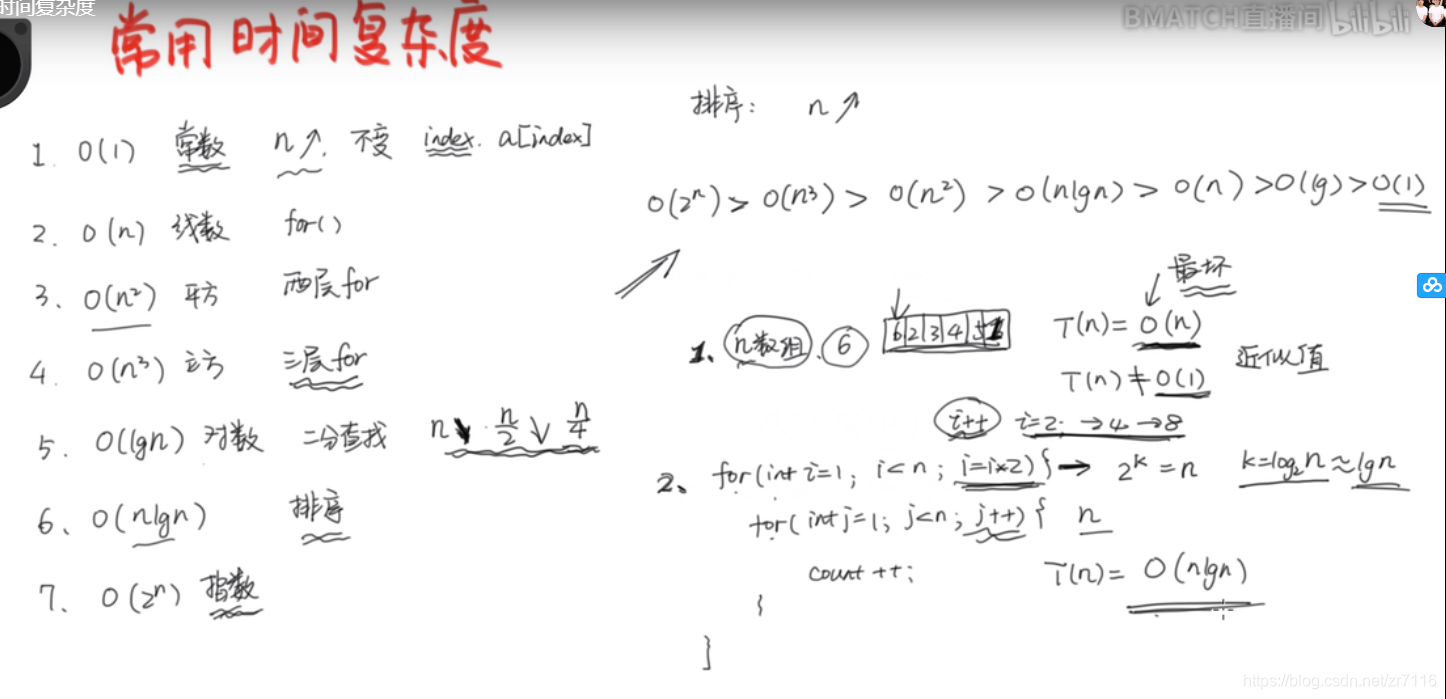 时间复杂度
BMATCH直播间 bilibili
常用时间复杂度
1. O(1) 常数 n↗. 不变 index. a[index]
2. O(n) 线数 for()
3、O(n²) 平方 两层for
4. O(n³) 立方 三层for
5. O(lgn) 对数 二分查找 n↘. n/2 ↓ n/4
6、O(nlgn) 排序
7、O(2ⁿ) 指数
排序: n↗
O(2ⁿ) > O(n³) > O(n²) > O(nlgn) > O(n) >O(lg) >O(1)
最坏
1、n数组. 6 6|2|3|4|5|1 T(n)= O(n)
T(n)≠O(1) 近似值
i++ i=2. →4 →8
2、for(int i=1; i<n; i=i×2){ → 2ᵏ=n k=log₂n≈lgn
for(int j=1; j<n; j++){ n
count++; T(n)= O(nlgn)
}
}
https://blog.csdn.net/zr7116